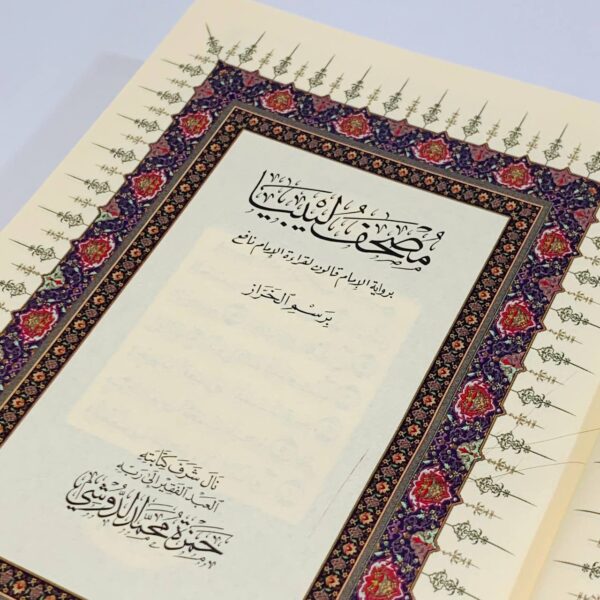 مصحف ليبيا
برواية الإمام قالون لقراءة الإمام نافع
برسم الخراز
نَالَ شَرَفَ كِتَابَتِهِ
العبد الفقير إلى ربه
حمزة محمد الدّوشي